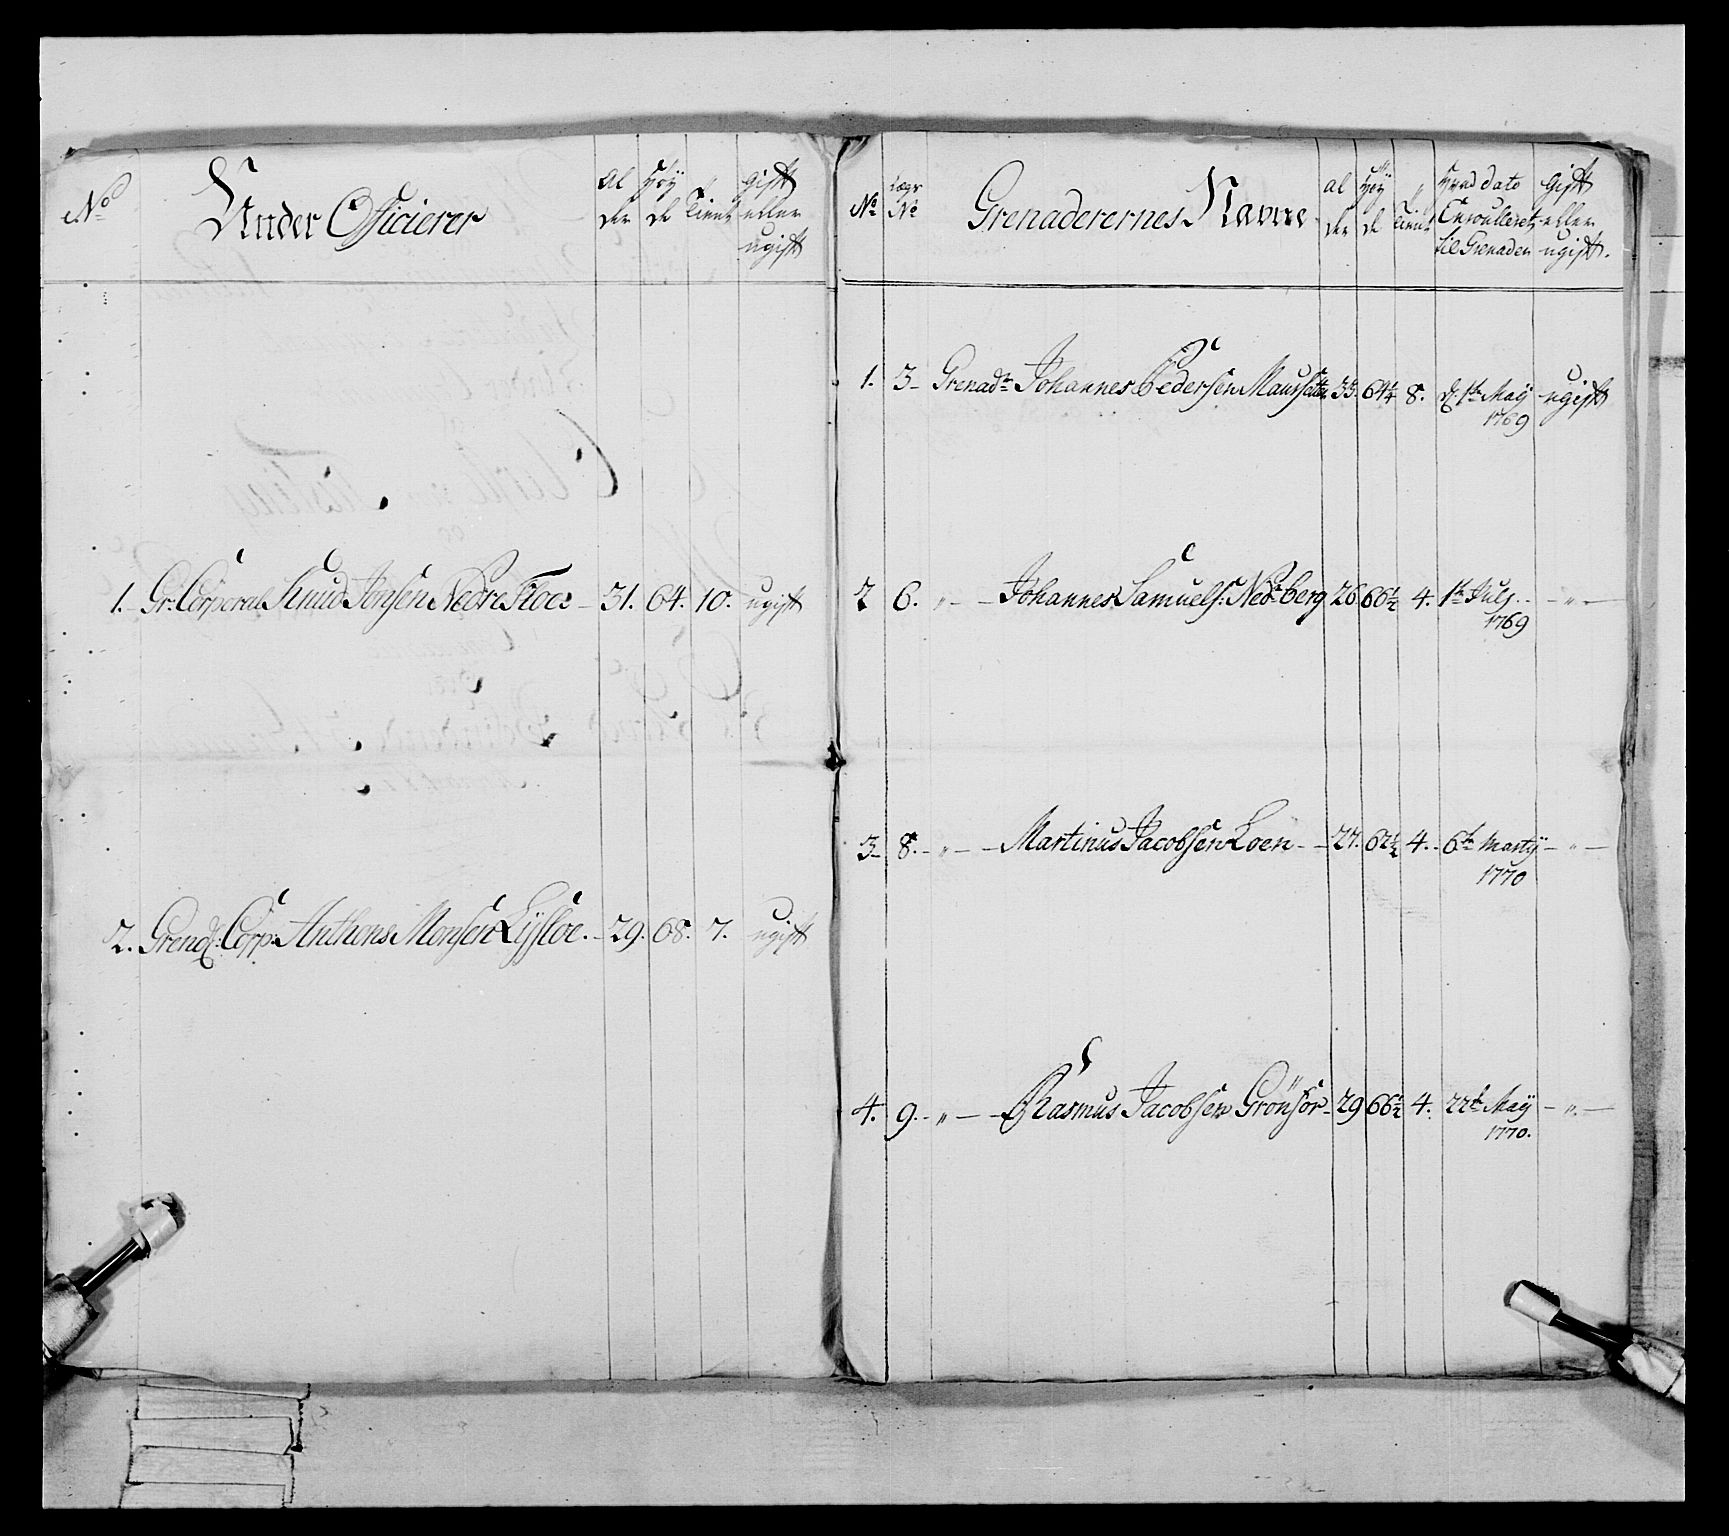 No
Under Officierer
Al
der
Höy
de
Tient
gift
eller
ugift
1. Gr: Corporal Knud Jonsen Nedre Floe - 31. 64. 10. ugift
2. Grend: Corp: Anthons Monsen Lysloe. - 29. 68. 7. ugift
No
Lægs
No
Grenaderernes Navne
Al
der
Höy
de
Tient
dato
Enroulleret
til Grenader
Gift
eller
ugift.
1. 3 - Grenadr Johannes Pedersen Maurseter 33. 64 1/4 8. d. 1te Maÿ ugift
1769
2 6. " - Johannes Samuels: Nedreberg 26 66 1/2 4. 1te July - " -
1769
3 - 8. - " - Martinus Jacobsen Loen - 27. 62 1/2 4. 6te Martÿ - " -
1770
4. 9. - " - Rasmus Jacobsen Grönsör - 29 66 1/2 4. 22de Maÿ - " -
1770.